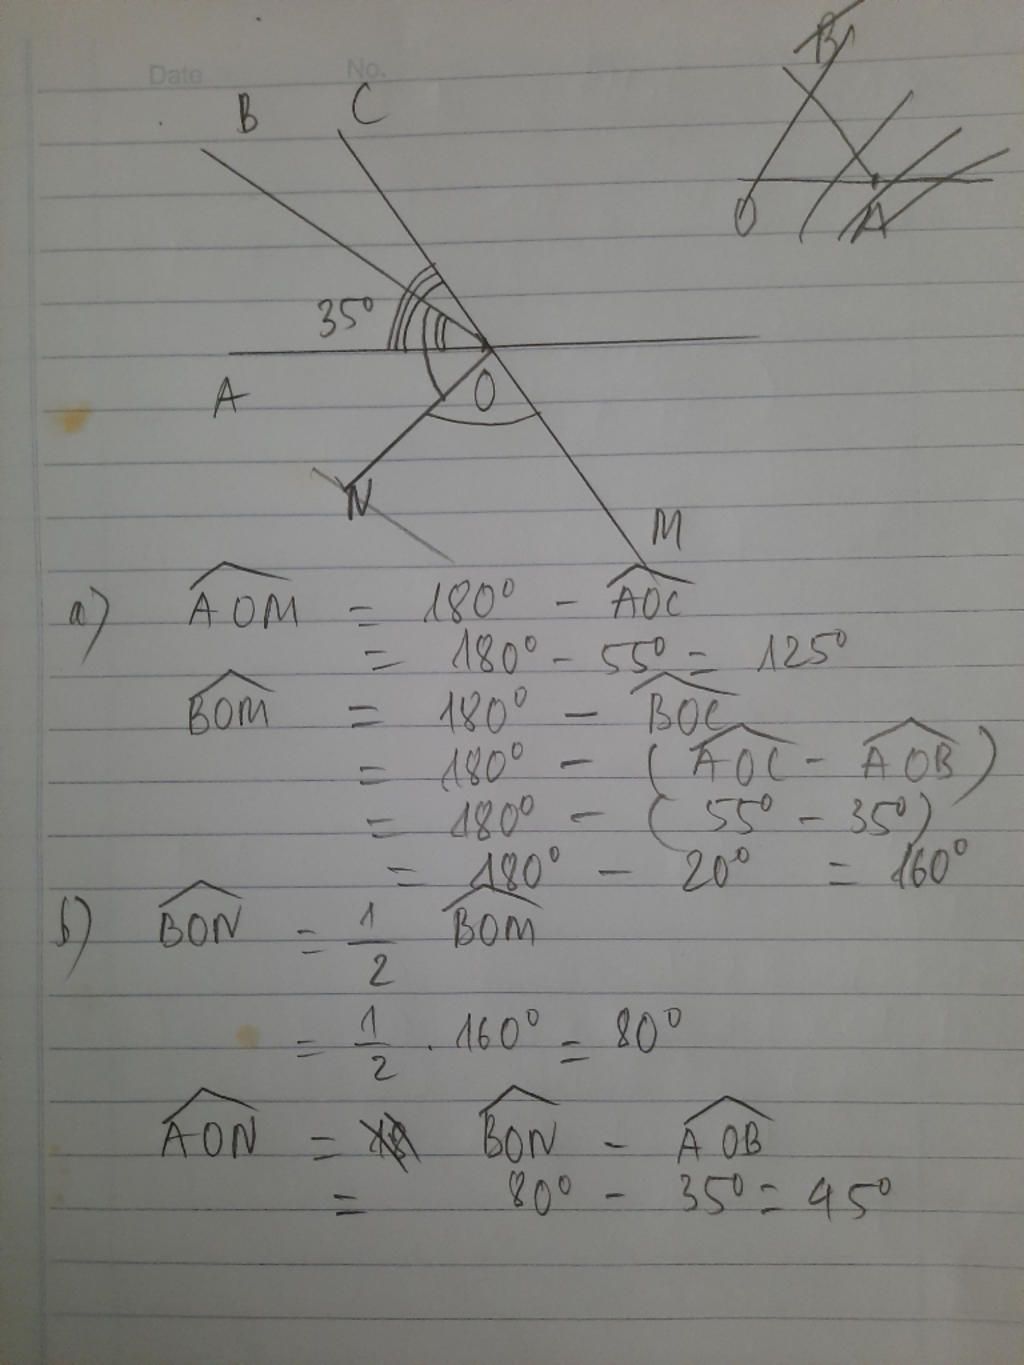 Date No.
B C
B
O A
35°
A O
N
M
a) AOM = 180° - AOC
= 180° - 55° = 125°
BOM = 180° - BOC
= 180° - (AOC - AOB)
= 180° - (55° - 35°)
= 180° - 20° = 160°
b) BON = 1/2 BOM
= 1/2 . 160° = 80°
AON = BON - AOB
= 80° - 35° = 45°